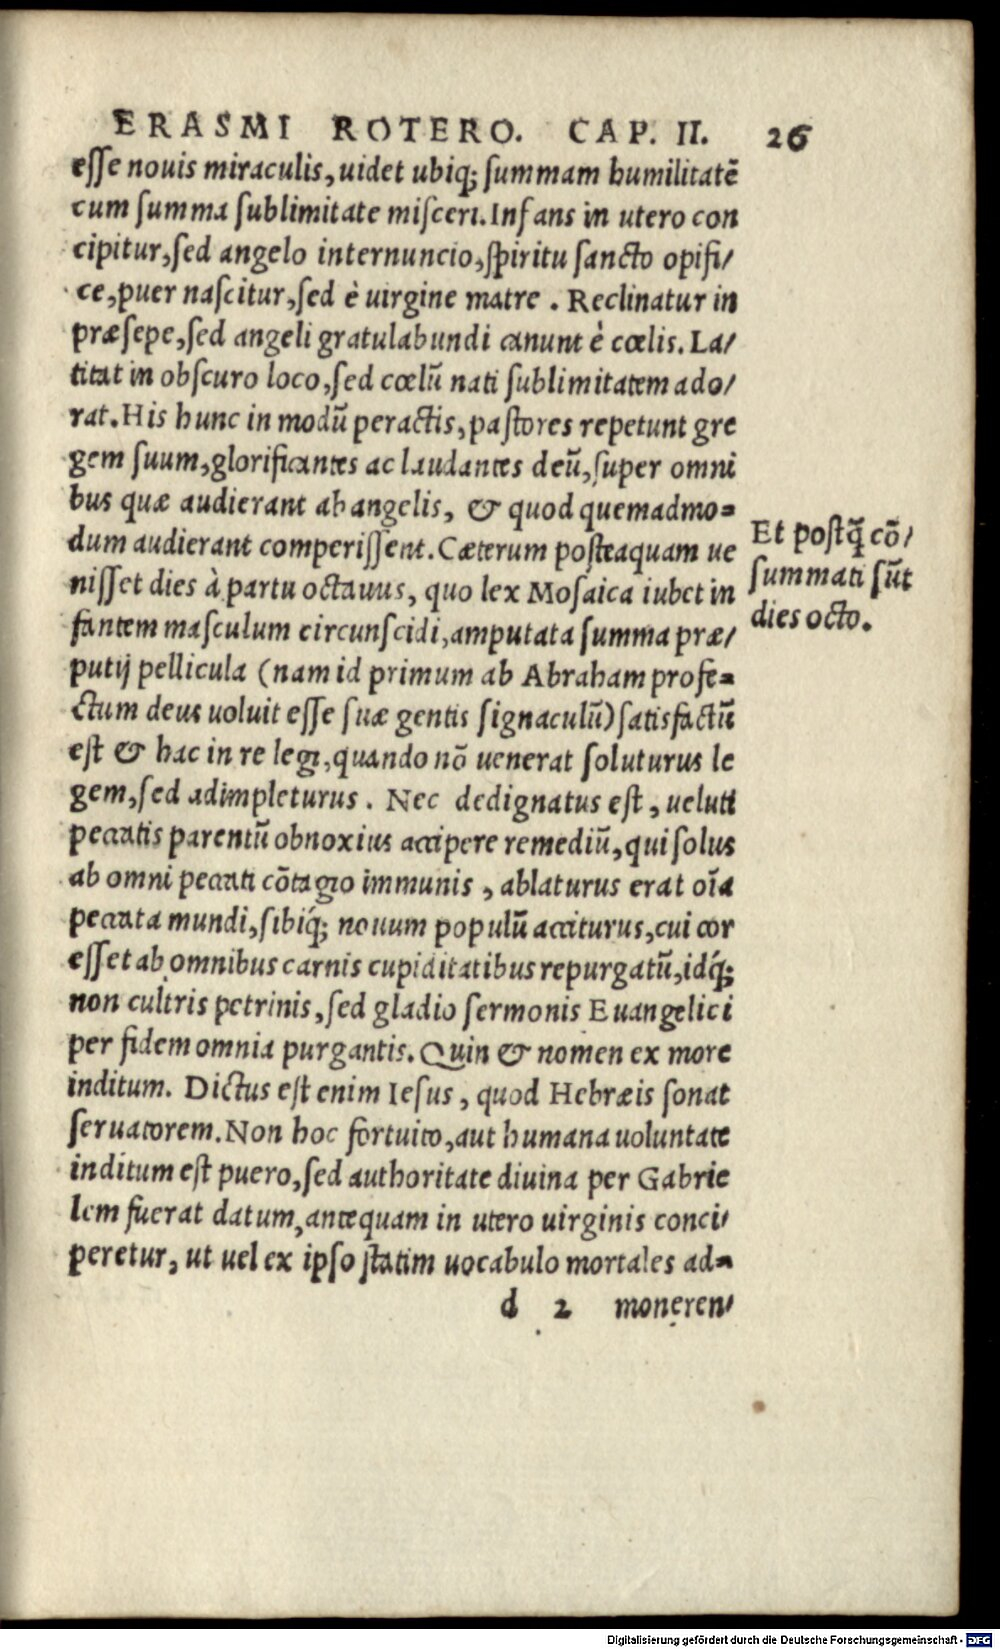 ERASMI ROTERO. CAP. II. 26
esse nouis miraculis, uidet ubiq; summam humilitatē
cum summa sublimitate misceri. Infans in utero con
cipitur, sed angelo internuncio, spiritu sancto opifi/
ce, puer nascitur, sed è uirgine matre . Reclinatur in
præsepe, sed angeli gratulabundi canunt è cœlis. La/
titat in obscuro loco, sed cœlū nati sublimitatem ado/
rat. His hunc in modū peractis, pastores repetunt gre
gem suum, glorificantes ac laudantes deū, super omni
bus quæ audierant ab angelis, & quod quemadmo-
dum audierant comperissent. Cæterum posteaquam ue
nisset dies à partu octauus, quo lex Mosaica iubet in
fantem masculum circunscidi, amputata summa præ/
putij pellicula (nam id primum ab Abraham profe-
ctum deus uoluit esse suæ gentis signaculū) satisfactū
est & hac in re legi, quando nō uenerat soluturus le
gem, sed adimpleturus . Nec dedignatus est, ueluti
peccatis parentū obnoxius accipere remediū, qui solus
ab omni peccati cōtagio immunis, ablaturus erat oīa
peccata mundi, sibiq́; nouum populū acciturus, cui cor
esset ab omnibus carnis cupiditatibus repurgatū, idq́;
non cultris petrinis, sed gladio sermonis Euangelici
per fidem omnia purgantis. Quin & nomen ex more
inditum. Dictus est enim Iesus, quod Hebræis sonat
seruatorem. Non hoc fortuito, aut humana uoluntate
inditum est puero, sed authoritate diuina per Gabrie
lem fuerat datum, antequam in utero uirginis conci/
peretur, ut uel ex ipso statim uocabulo mortales ad-
d 2 moneren/
Et postq̄ cō/
summati sūt
dies octo.
Digitalisierung gefördert durch die Deutsche Forschungsgemeinschaft - DFG